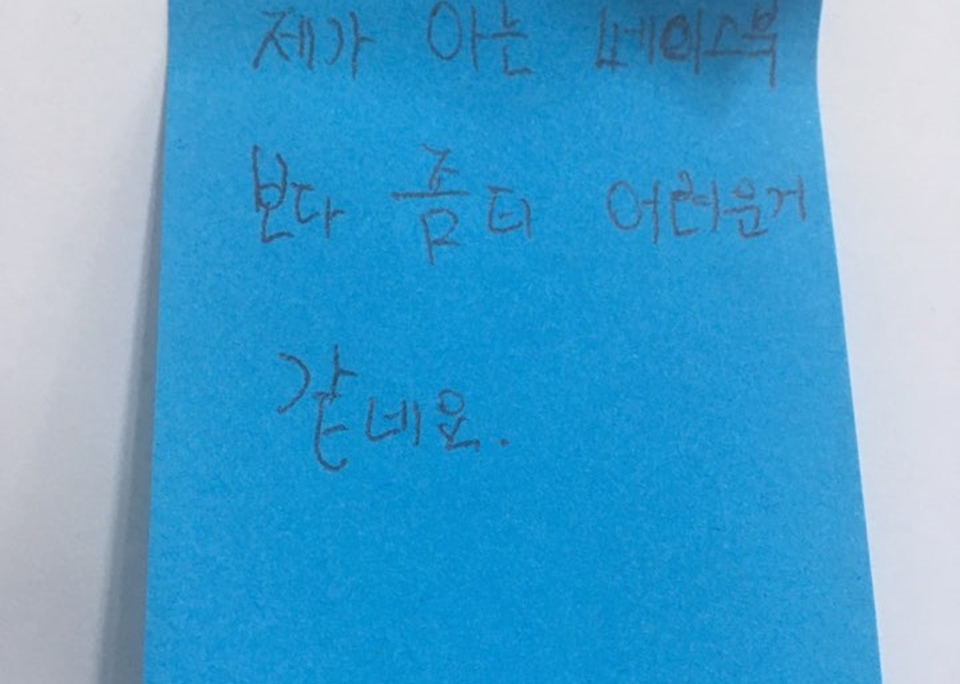 제가 아는 페이스북
보다 좀 더 어려운거
같네요.